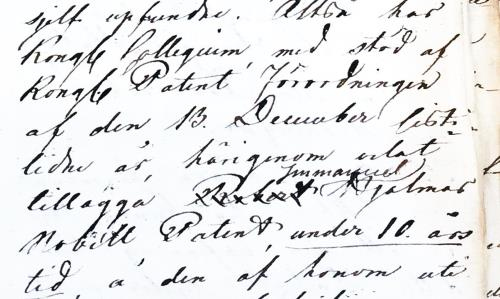 sjelf upfundne. Altså har
Kongl Collegium, med stöd af
Kongl Patent Förordningen
af den 13. December sist-
lidne år, härigenom velat
Immanuel
tillägga Hjalmar
Nobell Patent, under 10. års
tid å den af honom uti